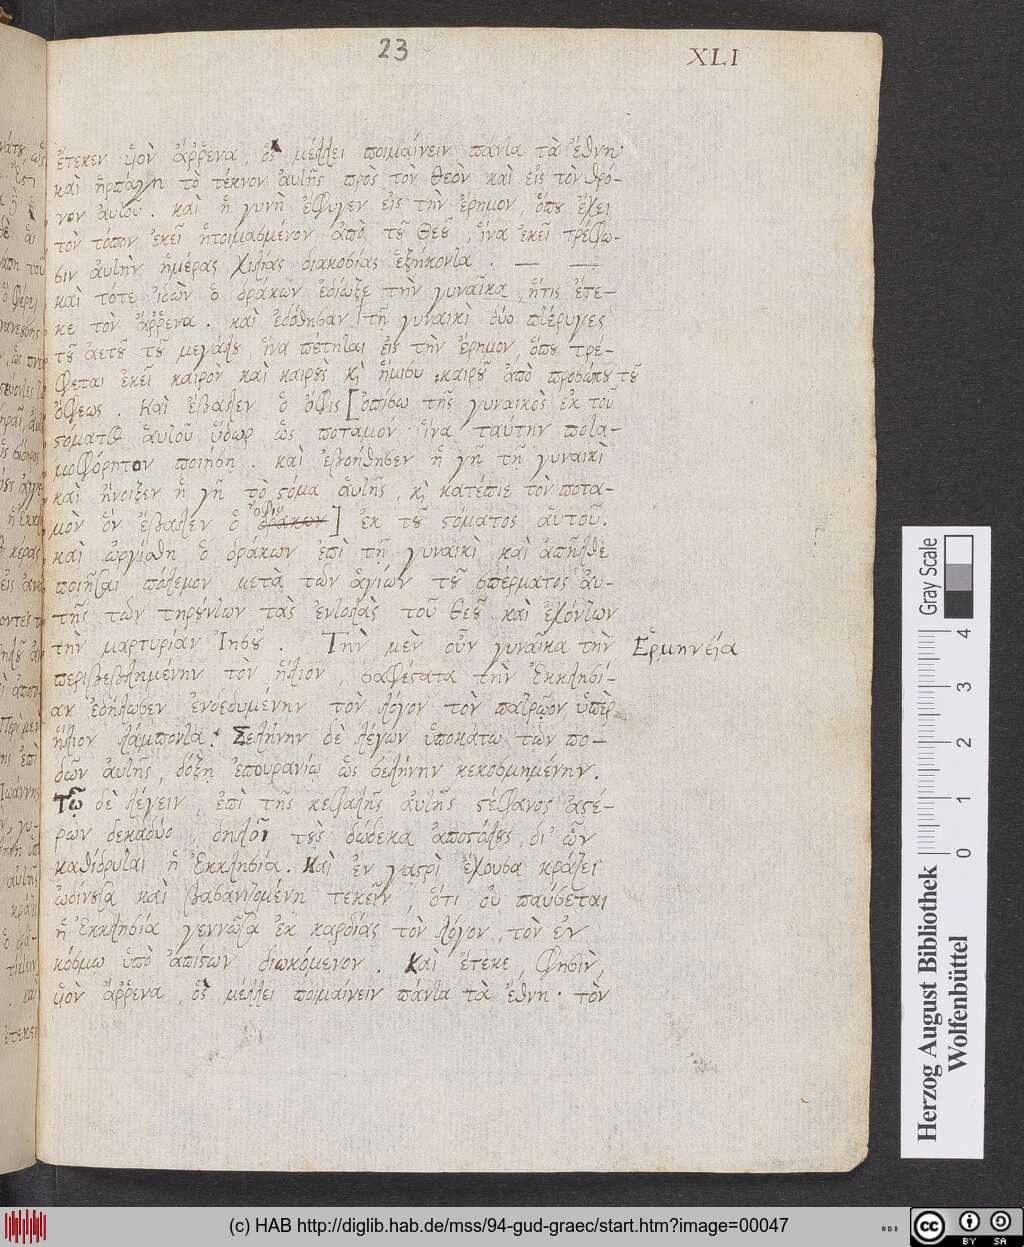 23
XLI
ἔτεκεν ὑὸν ἄῤῥενα, ὃς μέλλει ποιμαίνειν πάντα τὰ ἔθνη·
καὶ ἡρπάγη τὸ τέκνον αὐτῆς πρὸς τον θεὸν καὶ εἰς τὸν θρό-
νον αὐτοῦ. καὶ ἡ γυνὴ ἔφυγεν εἰς τὴν ἔρημον, ὅπου ἔχει
τὸν τόπον ἐκεῖ ἡτοιμασμένον ἀπὸ τοῦ Θεοῦ, ἵνα ἐκεῖ τρέφω-
σιν αὐτὴν ἡμέρας χιλίας διακοσίας ἑξήκοντα. — —
καὶ τότε ἰδὼν ὁ δράκων ἐδίωξε τὴν γυναῖκα, ἥτις ἔτε-
κε τὸν ἄῤῥενα. καὶ ἐδόθησαν τῇ γυναικὶ δύο πτέρυγες
τοῦ ἀετοῦ τοῦ μεγάλου, ἵνα πέτηται εἰς τὴν ἔρημον, ὅπου τρέ-
φεται ἐκεῖ καιρὸν καὶ καιροὺς κὶ ἥμισυ καιροῦ ἀπὸ προσώπου τοῦ
ὄφεως. Καὶ ἔβαλεν ὁ ὄφις [ὀπίσω τῆς γυναικὸς ἐκ τοῦ
στόματος αὑτοῦ ὕδωρ ὡς ποταμόν· ἵνα ταύτην ποτα-
μοφόρητον ποιήσῃ. καὶ ἐβοήθησεν ἡ γῆ τῇ γυναικὶ
καὶ ἤνοιξεν ἡ γῆ τὸ στόμα αὑτῆς, κὶ κατέπιε τὸν ποτα-
ὄφις
μὸν ὃν ἔβαλεν ὁ δράκων] ἐκ τοῦ στόματος αὑτοῦ.
καὶ ὠργίσθη ὁ δράκων ἐπὶ τῇ γυναικὶ καὶ ἀπῆλθε
ποιῆσαι πόλεμον μετὰ τῶν ἁγίων τοῦ σπέρματος αὐ-
τῆς τῶν τηρούντων τὰς ἐντολὰς τοῦ Θεοῦ καὶ ἐχόντων
τὴν μαρτυρίαν Ἰησοῦ. Τὴν μὲν οὖν γυναῖκα τὴν
Ἑρμηνεία
περιβεβλημένην τὸν ἥλιον, σαφέστατα τὴν Ἐκκλησί-
αν ἐδήλωσεν ἐνδεδυμένην τὸν λόγον τὸν πατρῷον ὑπὲρ
ἥλιον λάμποντα. Σελήνην δὲ λέγων ὑποκάτω τῶν πο-
δῶν αὐτῆς, δόξῃ ἐπουρανίῳ ὡς σελήνην κεκοσμημένην.
Τῷ δὲ λέγειν, ἐπὶ τῆς κεφαλῆς αὐτῆς στέφανος ἀστέ-
ρων δεκαδύο, δηλοῖ τοὺς δώδεκα ἀποστόλους, δι' ὧν
καθίδρυται ἡ Ἐκκλησία. Καὶ ἐν γαστρὶ ἔχουσα κράζει
ὠδίνουσα καὶ βασανιζομένη τεκεῖν, ὅτι οὐ παύσεται
ἡ Ἐκκλησία γεννῶσα ἐκ καρδίας τὸν λόγον, τὸν ἐν
κόσμῳ ὑπὸ ἀπίστων διωκόμενον. Καὶ ἔτεκε, φησὶν,
ὑὸν ἄῤῥενα, ὃς μέλλει ποιμαίνειν πάντα τὰ ἔθνη· τὸν
Gray Scale
0 1 2 3 4
Herzog August Bibliothek
Wolfenbüttel
(c) HAB http://diglib.hab.de/mss/94-gud-graec/start.htm?image=00047
cc BY SA